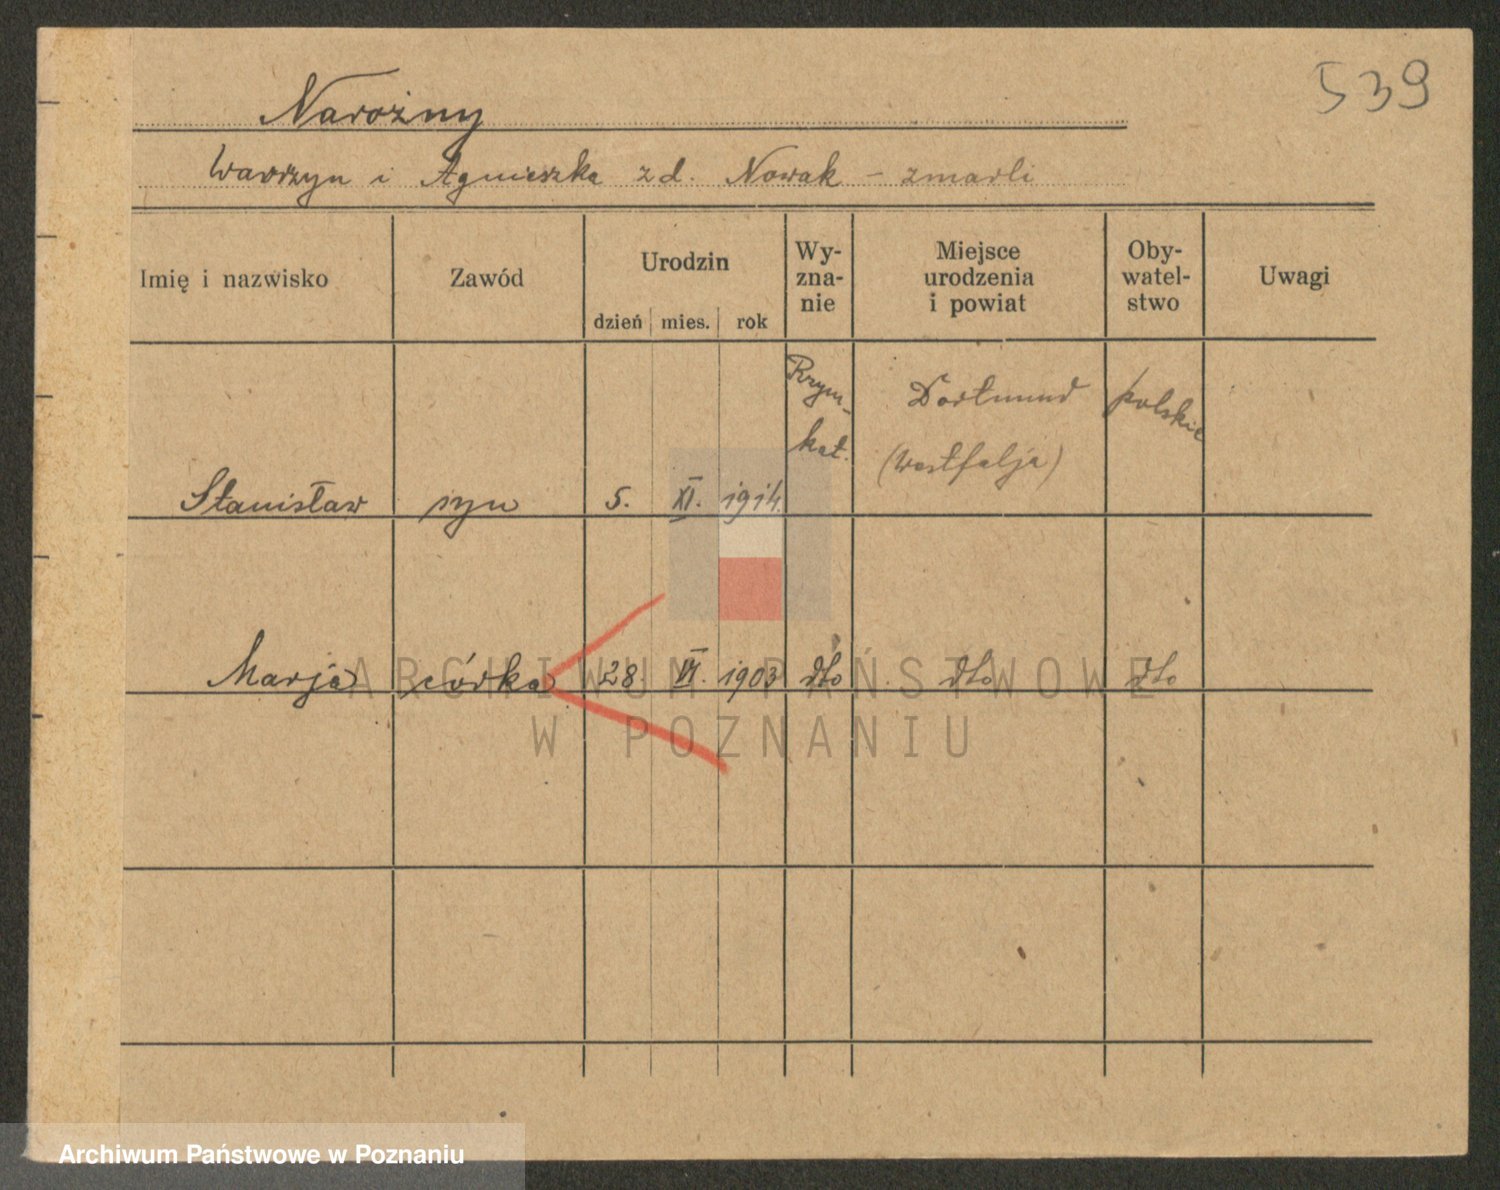 539
Narożny
Wawrzyn i Agnieszka z d. Nowak – zmarli
Imię i nazwisko
Zawód
Urodzin
dzień mies. rok
Wy-
zna-
nie
Miejsce
urodzenia
i powiat
Oby-
watel-
stwo
Uwagi
Stanisław syn 5. XI. 1914.
Rzym.-
kat.
Dortmund
(Westfalja)
polskie
Marja córka 28. VI. 1903 dto dto dto
ARCHIWUM PAŃSTWOWE
W POZNANIU
Archiwum Państwowe w Poznaniu